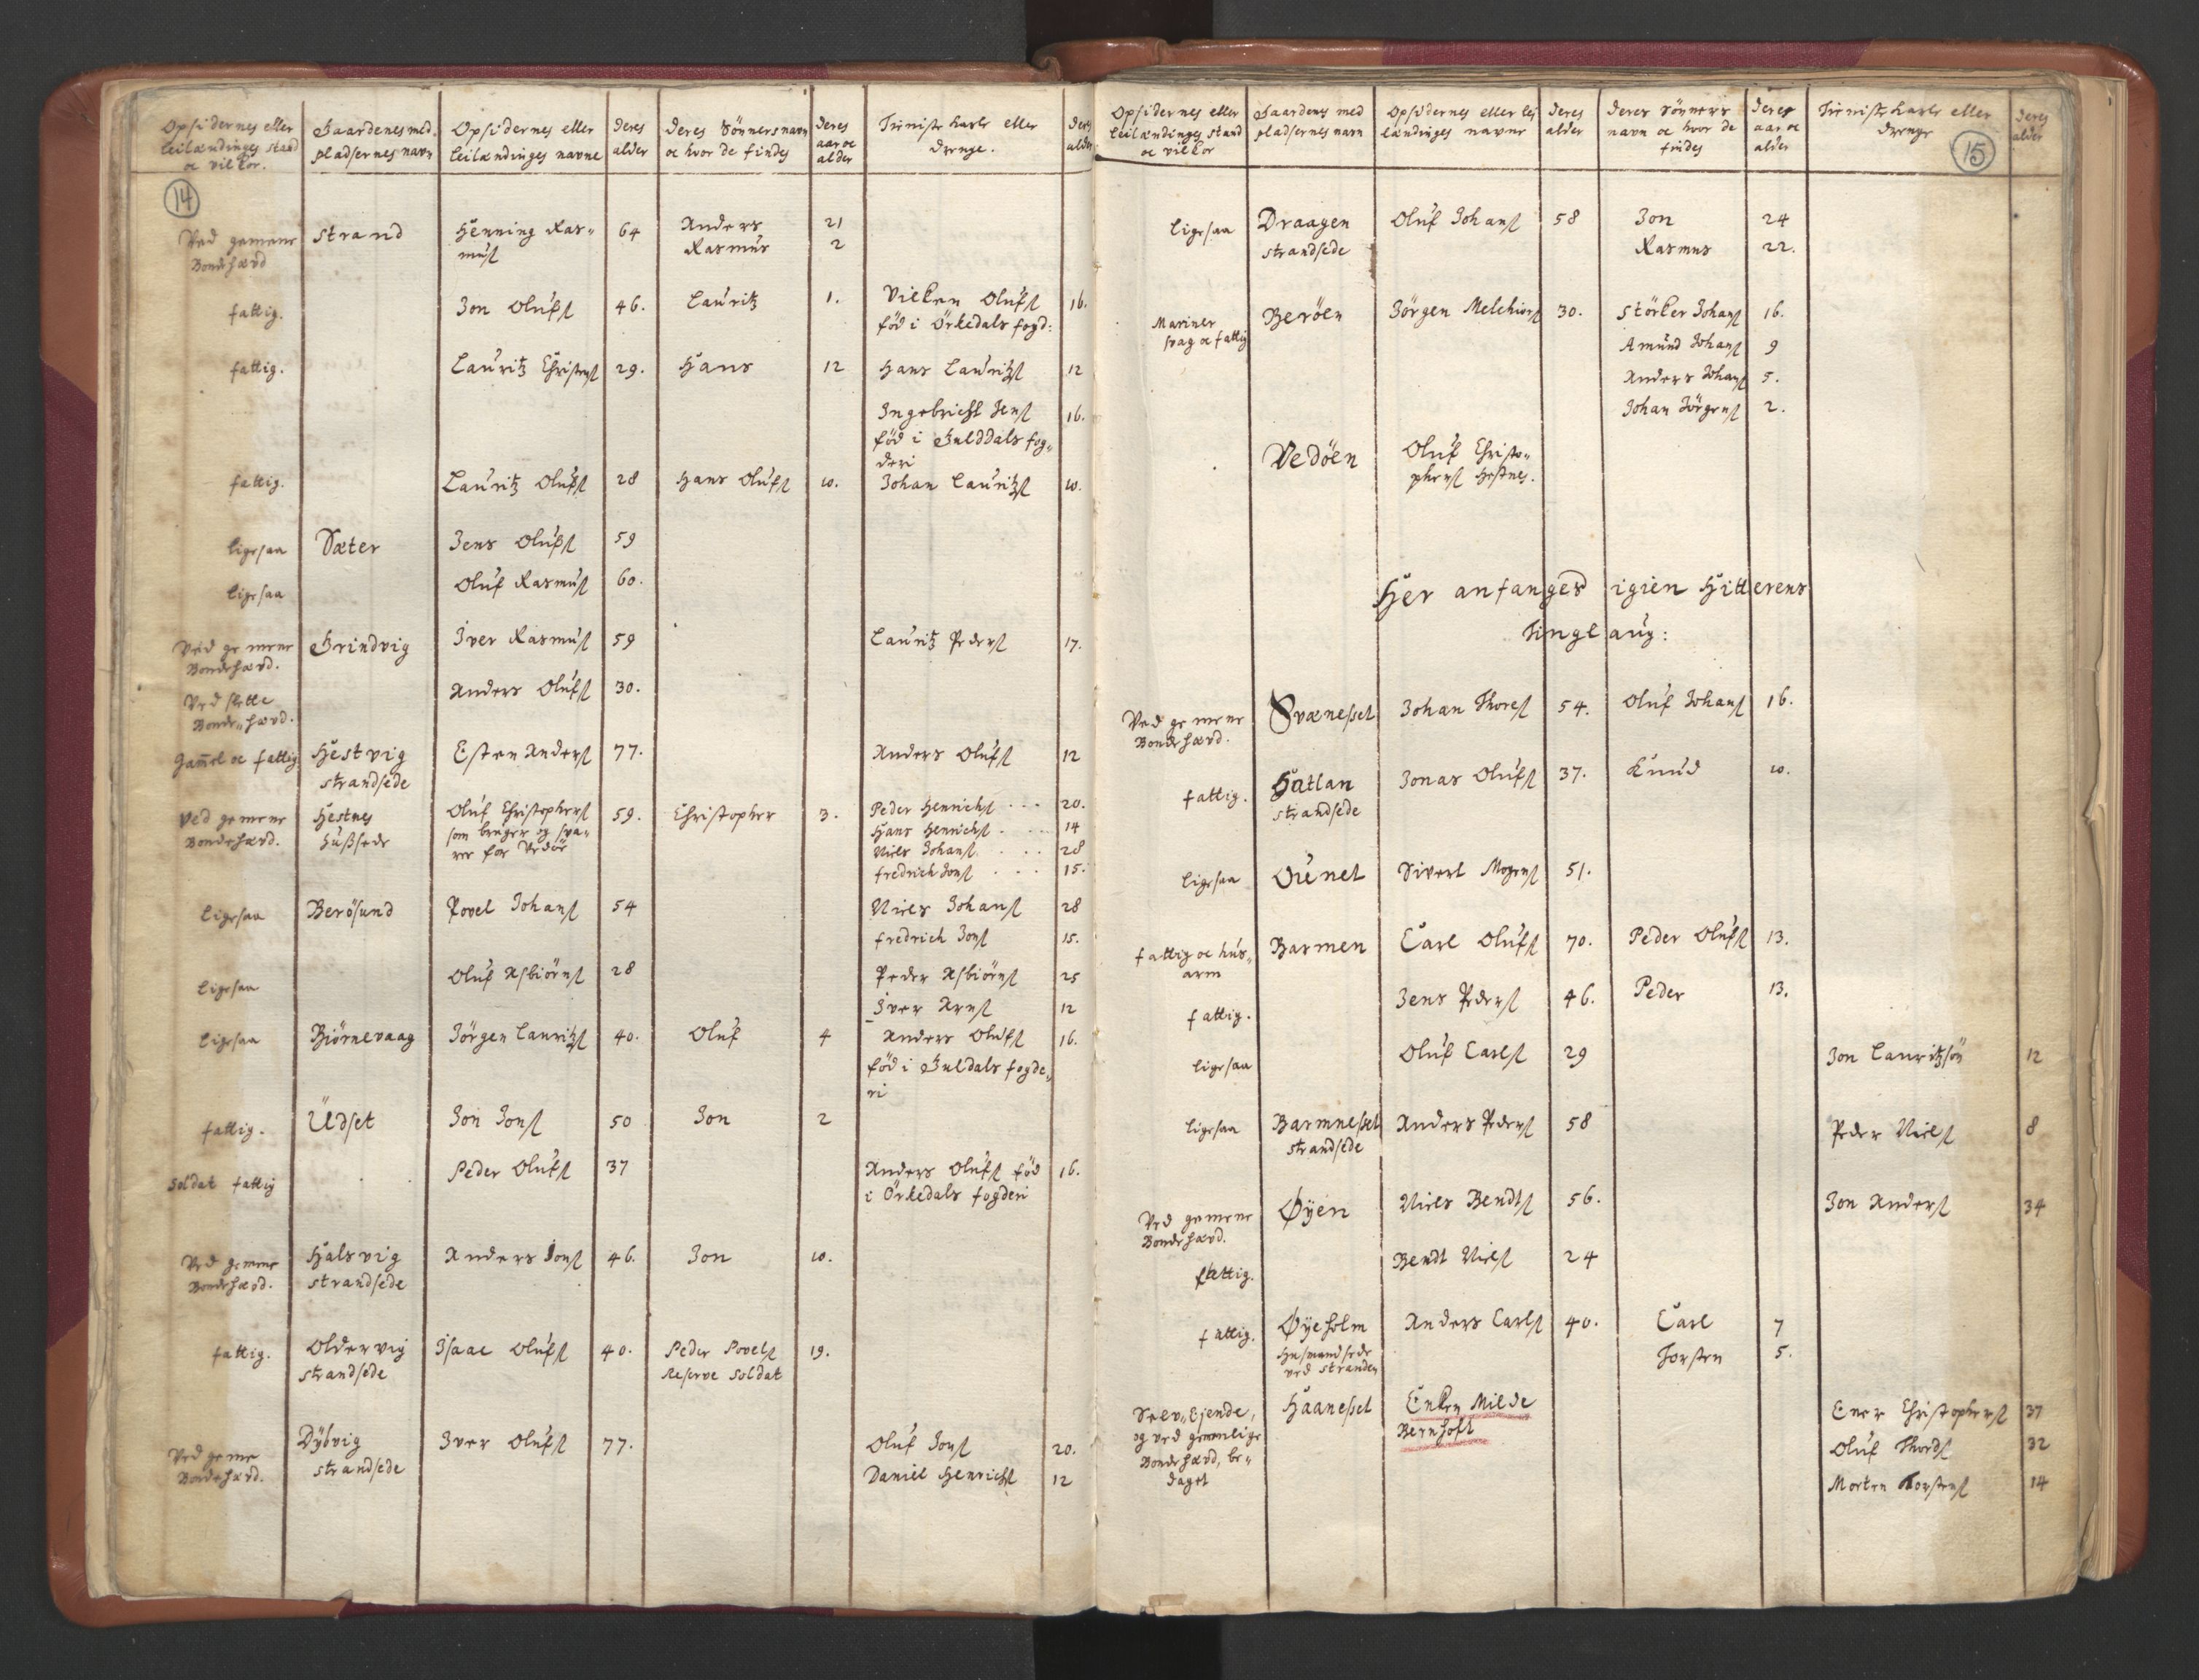 Opsidernes eller leilændinges stand oc vilkor.
Gaardenes med pladsernes navn
Opsidernes eller leilændinges navne
deres alder
deres Sönners navn oc hvor de findes
deres aar oc alder
Tienistekarle eller drenge.
deres alder
14
Ved gemene Bondehævd Strand Henning Rasmusſ 64 Anders 21
Rasmus 2
fattig. Jon Olufsſ 46. Lauritz 1. Vilken Olufsſ 16.
föd i Örkedals fogd:
fattig. Lauritz Christensſ 29. Hans 12 Hans Lauritzſ 12
Ingebricht Jensſ 16.
föd i Gulddals fog„
deri
fattig. Lauritz Olufsſ 28 Hans Olufsſ 10. Johan Lauritzſ 10.
ligesaa Sæter Jens Olufsſ 59
ligesaa Oluf Rasmusſ 60.
Ved gemene Bondehævd. Grindvig Iver Rasmusſ 59 Lauritz Pedersſ 17.
Ved slette Bonde„hævd. Anders Olufsſ 30.
Gam̄el oc fattig Hestvig strandsede Esten Andersſ 77. Anders Olufsſ 12
Ved gemene Bondehævd. Hestnes hußsede Oluf Christophersſ 59. Christopher 3. Peder Henrichsſ 20.
som bruger og sva„ Hans Henrichsſ 14
rer for Vedöe Niels Johansſ 28
fredrich Jonsſ 15.
ligesaa Berösund Povel Johansſ 54 Niels Johansſ 28
fredrich Jonsſ 15.
ligesaa Oluf Asbiörnsſ 28 Peder Asbiörnsſ 25
Iver Arnsſ 12
ligesaa Biörnevaag Jörgen Lauritzſ 40. Oluf 4 Anders Olufsſ 16.
föd i Guldals fogde„
ri
fattig. Udset Jon Jonsſ 50 Jon 2
Soldat fattig Peder Olufsſ 37 Anders Olufsſ föd 16.
i Örkedals fogderi
Ved gemene Bondehævd. Halsvig strandsede Anders Jonsſ 46. Jon 10.
fattig. Oldervig strandsede Isaac Olufsſ 40. Peder Povelsſ 19.
Reserve Soldat
Ved geme Bondehævd. Dybvig strandsede Iver Olufsſ 77. Oluf Jonsſ 20.
Daniel Henrichsſ 12
Opsidernes eller leilændinges stand oc vilkor
Gaardenes med pladsernes navn
Opsidernes eller leilændinges navne
deres alder
deres Sönners navn oc hvor de findes
deres aar oc alder
Tienistekarle eller drenge
deres alder
15
ligesaa Draagen strandsede Oluf Johansſ 58 Jon 24
Rasmus 22.
Mariner svag oc fattig Beröen Jörgen Melchiorsſ 30. Störker Johansſ 16.
Amund Johansſ 9
Anders Johansſ 5.
Johan Jörgensſ 2.
Vedöen Oluf Christo„
phersſ Hestnes.
Her anfanges igien Hitterens
Tinglaug:
Ved gemene Bondehævd. Svæneßet Johan Thoresſ 54. Oluf Johansſ 16.
fattig. Hatlan strandsede Jonas Olufsſ 37. Knud 10.
ligesaa Ounet Sivert Mogensſ 51.
fattig oc hus„ arm Barmen Carl Olufsſ 70. Peder Olufsſ 13.
fattig. Jens Pedersſ 46. Peder 13.
ligesaa Oluf Carlsſ 29 Jon Lauritzsön 12
ligesaa Barmneßet strandsede Anders Pedersſ 58 Peder Nielsſ 8
Ved gemene Bondehævd. Øyen Niels Bendtsſ 56. Jon Andersſ 34
fattig. Bendt Nielsſ 24
fattig. Øyeholm Anders Carlsſ 40. Carl 7
Husmandsede Torsten 5.
ved stranden
Selv„Ejende, Haaneßet Enken Milde Ener Christophersſ 37
og ved gemenlige Bernhoft Oluf Thordsſ 32
Bondehævd, be„ Morten Torstensſ 14
daget